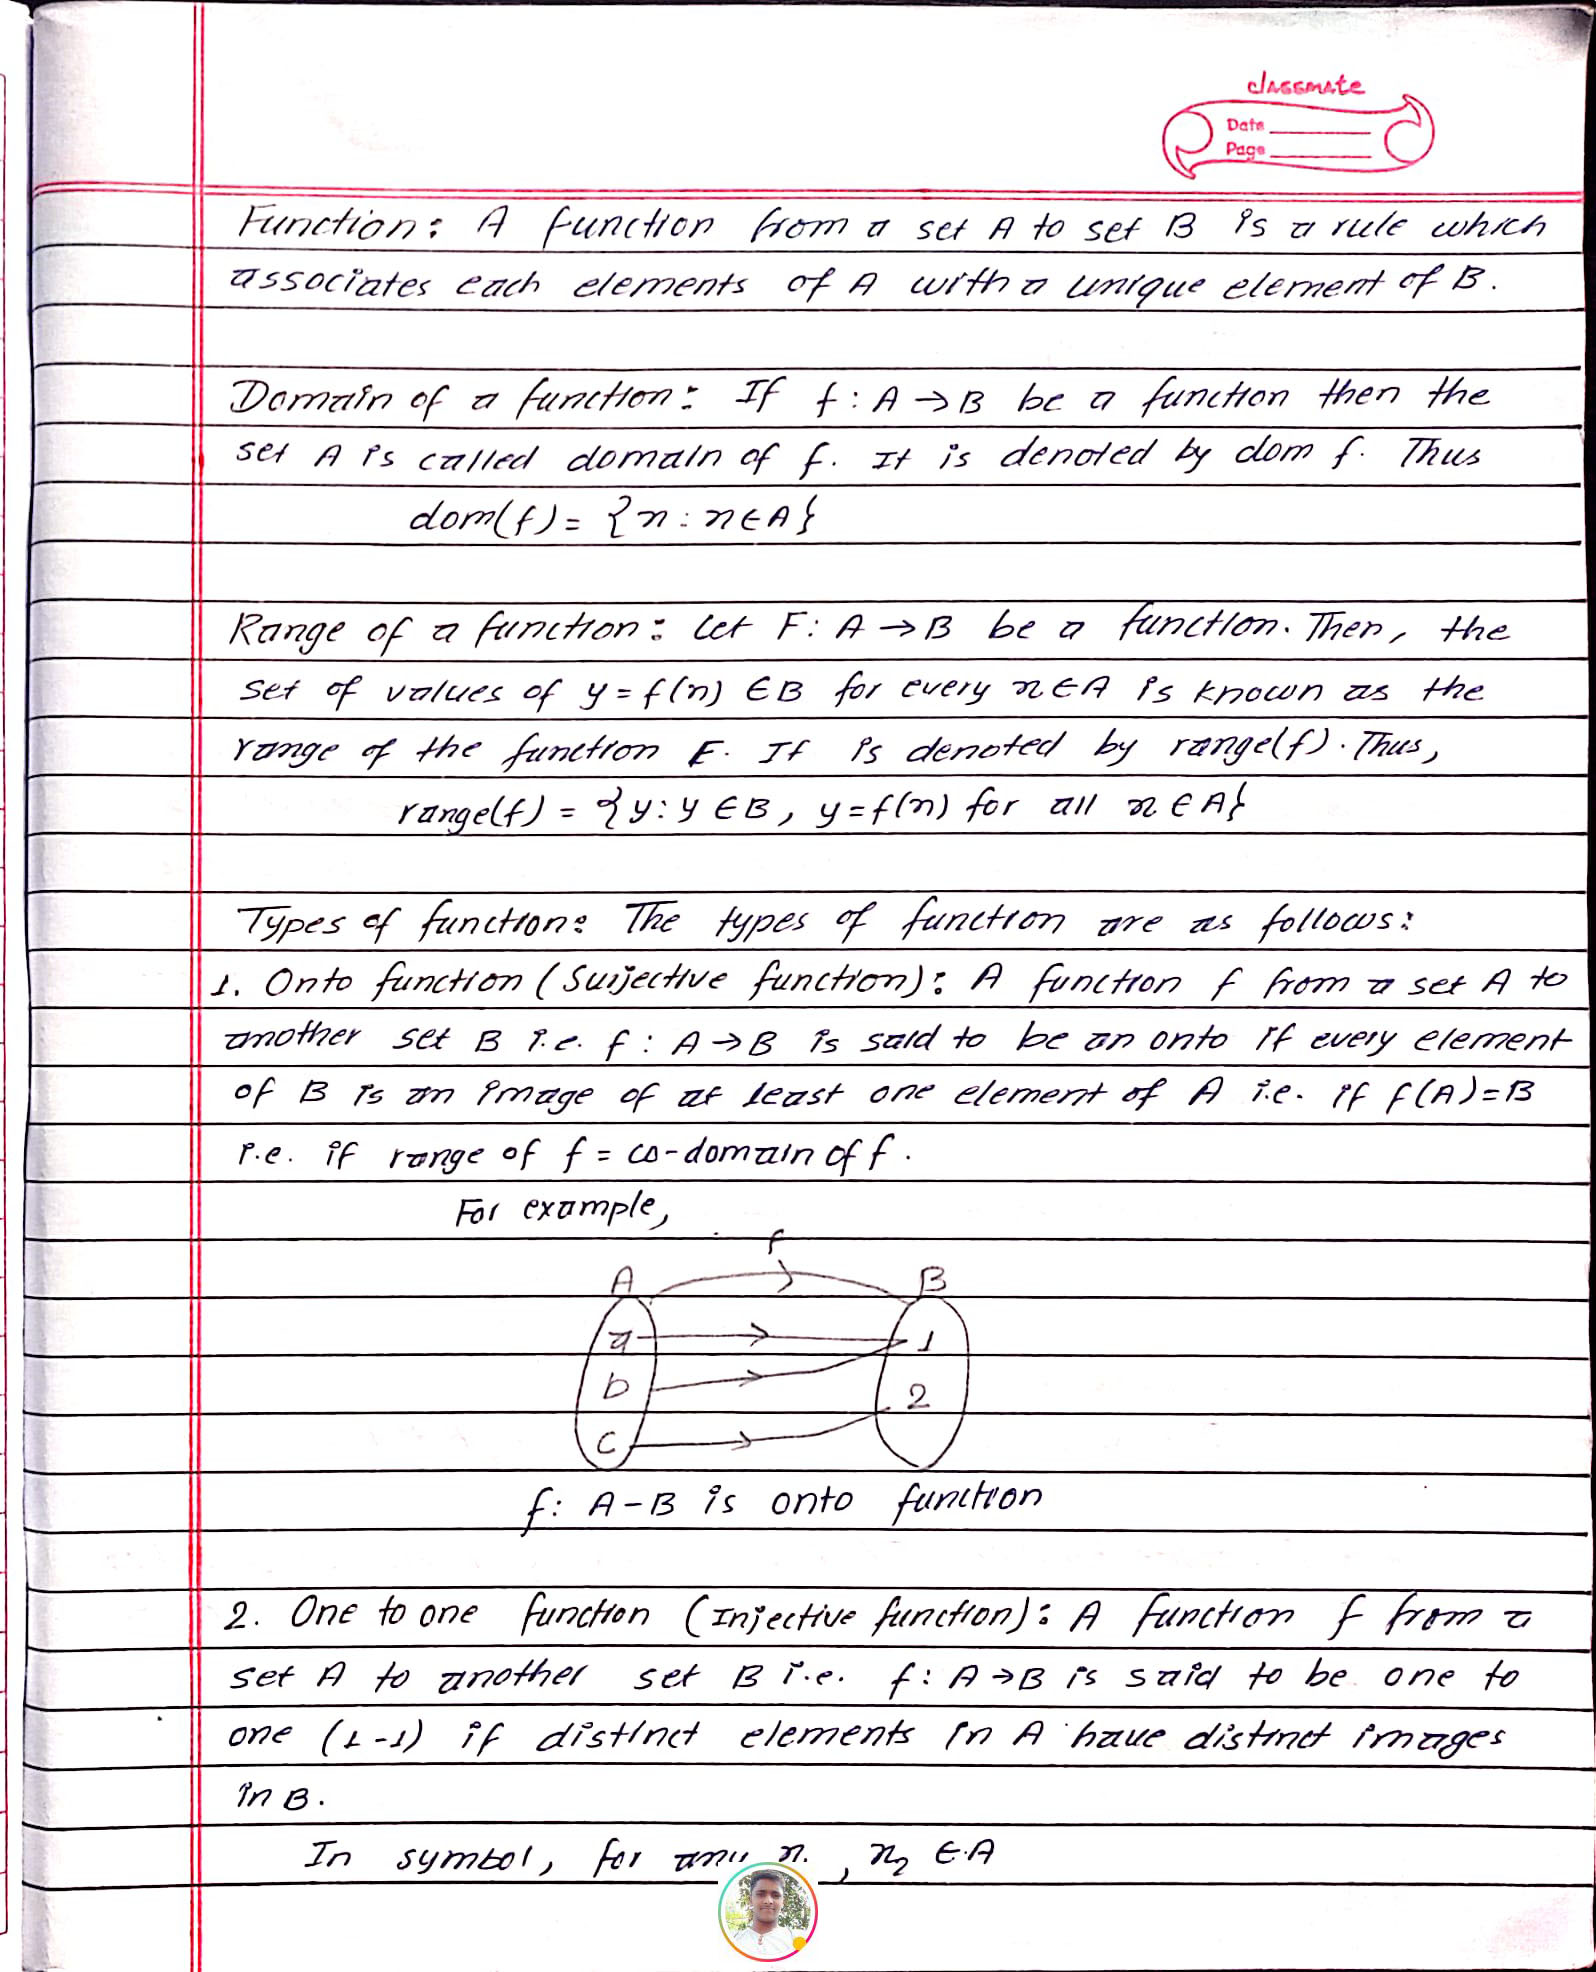 classmate
Date
Page
Function: A function from a set A to set B is a rule which
associates each elements of A with a unique element of B.
Domain of a function: If f : A → B be a function then the
set A is called domain of f. It is denoted by dom f. Thus
dom(f) = {x : x ∈ A}
Range of a function: Let F: A → B be a function. Then, the
set of values of y = f(x) ∈ B for every x ∈ A is known as the
range of the function F. It is denoted by range(f). Thus,
range(f) = {y : y ∈ B, y = f(x) for all x ∈ A}
Types of function: The types of function are as follows:
1. Onto function (Surjective function): A function f from a set A to
another set B i.e. f : A → B is said to be an onto if every element
of B is an image of at least one element of A i.e. if f(A) = B
i.e. if range of f = co-domain of f.
For example,
f
A B
a 1
b 2
c
f: A - B is onto function
2. One to one function (Injective function): A function f from a
set A to another set B i.e. f : A → B is said to be one to
one (1-1) if distinct elements in A have distinct images
in B.
In symbol, for any x₁, x₂ ∈ A